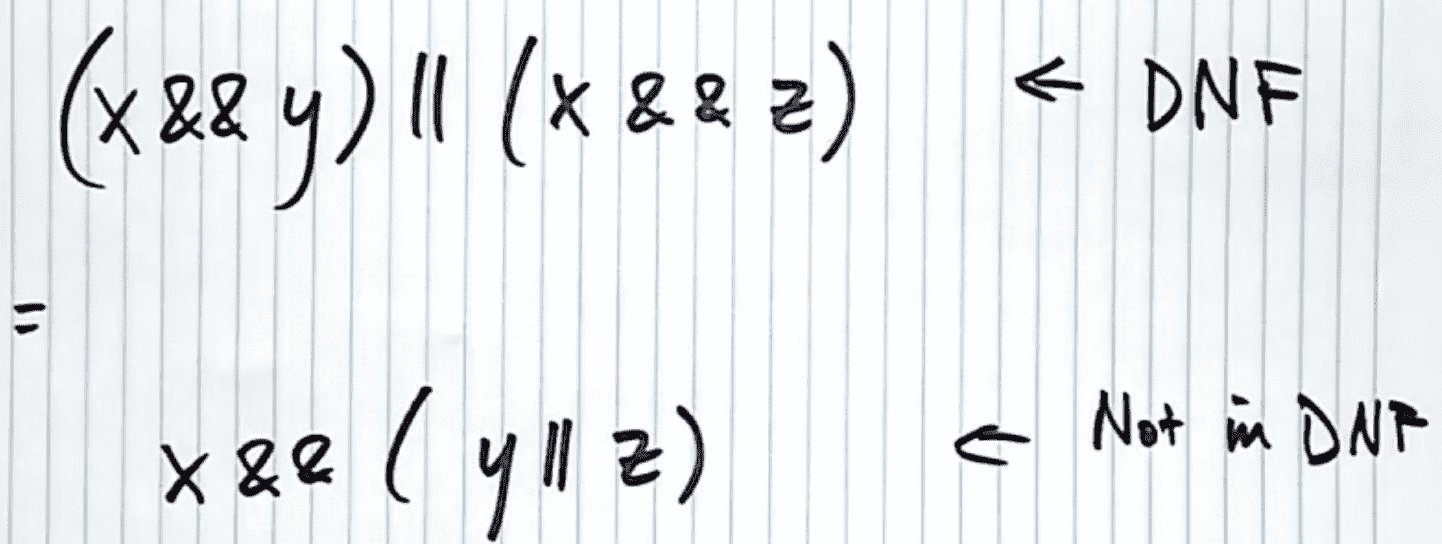 (x && y) || (x && z) ← DNF
=
x && (y || z) ← Not in DNF